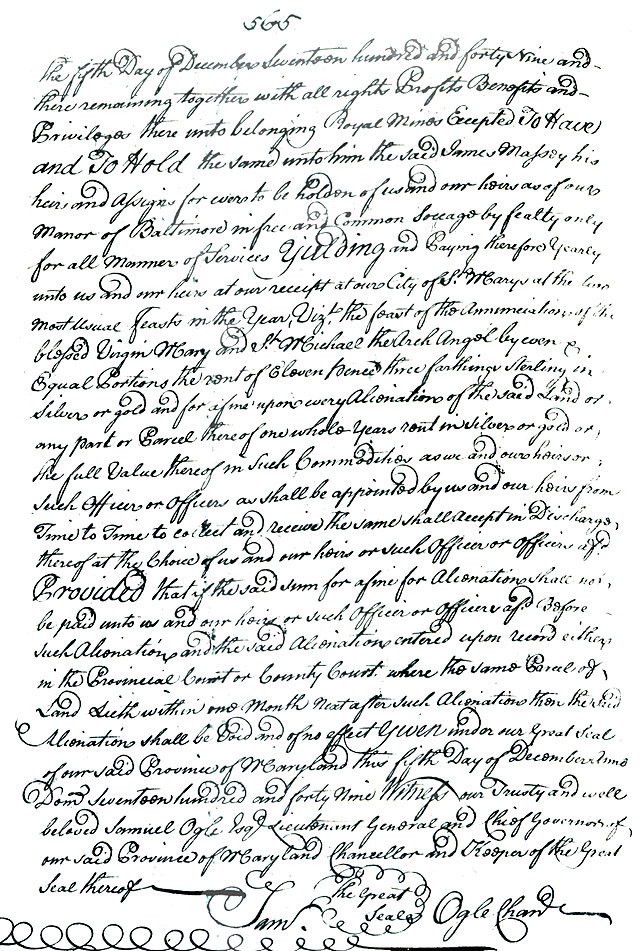 565
the fifth Day of December Seventeen hundred and forty Nine and
there remaining together with all rights Profits Benefits and
Priviledges there unto belonging Royal Mines Excepted To Have
and To Hold the same unto him the said James Massey his
heirs and Assigns for ever to be holden of us and our heirs as of our
Manor of Baltimore in free and Common Soccage by fealty only
for all Manner of Services Yielding and Paying therefore Yearly
unto us and our heirs at our receipt at our City of St. Marys at the two
most Usual Feasts in the Year, Vizt. the feast of the Annunciation of the
blessed Virgin Mary and St. Michael the Arch Angel by even &
Equal Portions the rent of Eleven pence three farthings Sterling in
Silver or gold and for a fine upon every Alienation of the said Land or
any part or Parcel thereof one whole Years rent in silver or gold or
the full Value thereof in Such Commodities as we and our heirs or
Such Officer or Officers as shall be appointed by us and our heirs from
Time to Time to collect and receive the same shall Accept in Discharge
thereof at the Choice of us and our heirs or such Officer or Officers afd.
Provided that if the said sum for a fine for Alienation shall not
be paid unto us and our heirs or such Officer or Officers afd. Before
such Alienation and the said Alienation entered upon record either
in the Provincial Court or County Court where the same Parcel of
Land Lieth within one Month Next after Such Alienation then the said
Alienation shall be Void and of no effect Given under our Great Seal
of our said Province of Maryland this fifth Day of December Anno
Domi Seventeen hundred and forty Nine Witness our Trusty and well
beloved Samuel Ogle Esqr. Lieutenant General and Chief Governor of
our said Province of Maryland Chancellor and Keeper of the Great
Seal thereof
Sam. The Great Seal Ogle Chanc